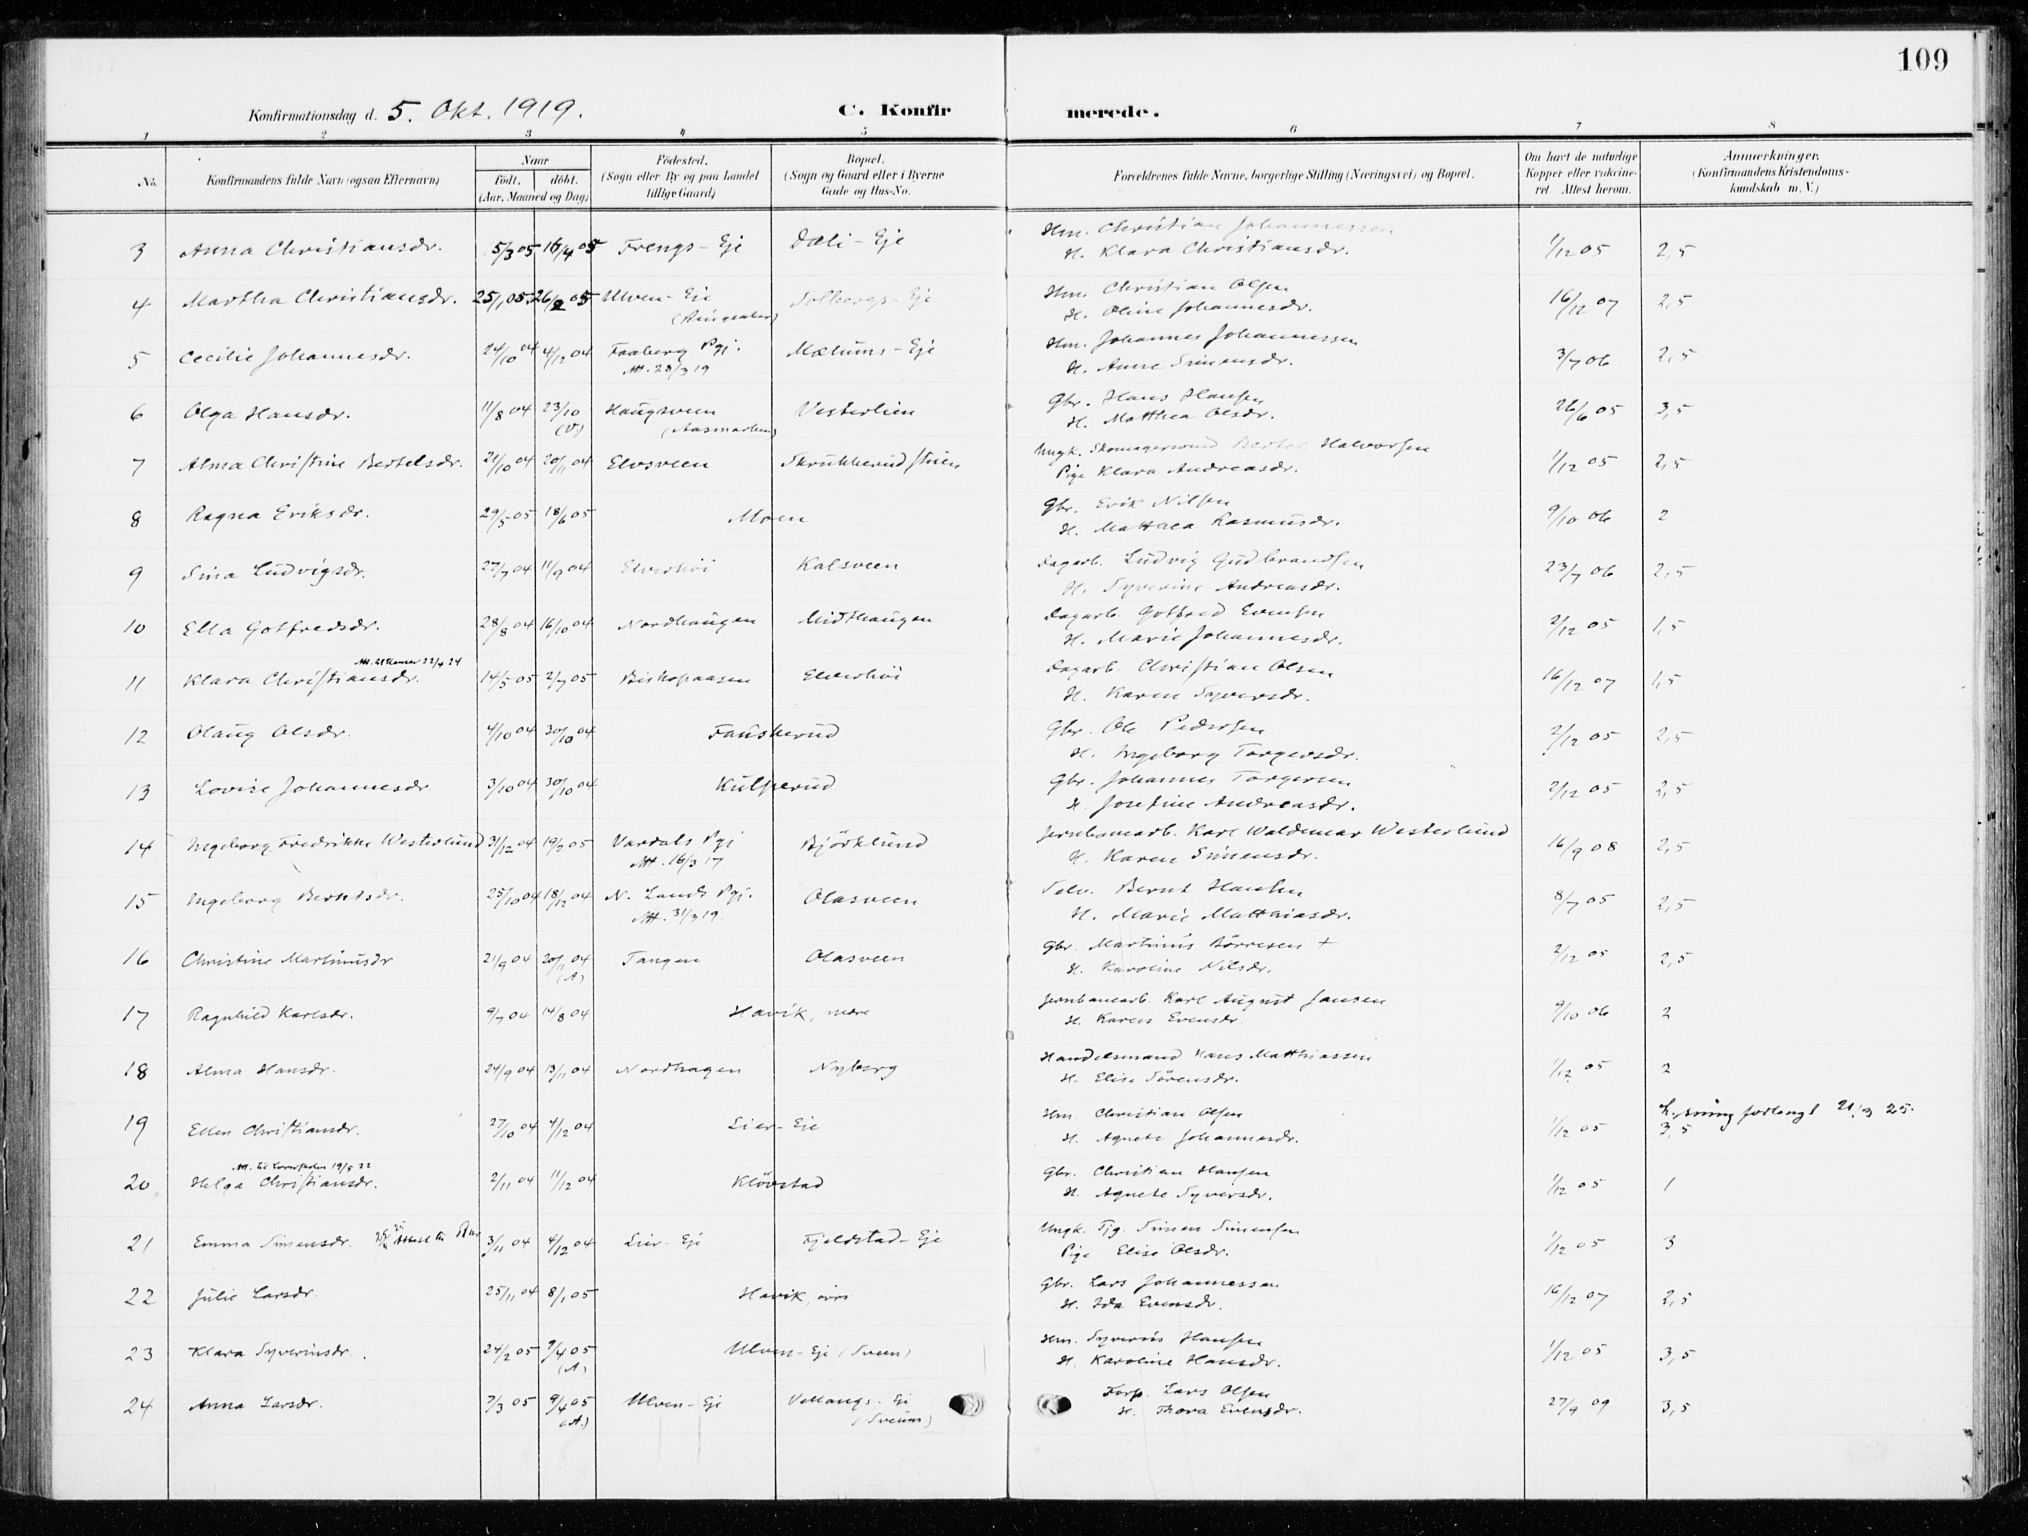 109
Konfirmationsdag d. 5. Okt. 1919.
C. Konfir merede.
1 2 3 4 5 6 7 8
No.
Konfirmandens fulde Navn (ogsaa Efternavn)
Naar
födt. döbt.
(Aar, Maaned og Dag)
Födested.
(Sogn eller By og paa Landet
tillige Gaard)
Bopæl.
(Sogn og Gaard eller i Byerne
Gade og Hus-No.
Forældrenes fulde Navne, borgerlige Stilling (Næringsvei) og Bopæl.
Om havt de naturlige
Kopper eller vakcine-
ret Attest herom.
Anmerkninger,
(Konfirmandens Kristendoms-
kundskab m. V.)
3 Anna Christiansdr. 5/3 05 16/4 05 Frengs-Eje Dæli-Eje Hm. Christian Johannessen
H. Klara Christiansdr. 1/12 05 2,5
4 Martha Christiansdr. 25/1 05 26/2 05 Ulven-Eje Solbergs-Eje Hm. Christian Olsen
(Ringsaker) H. Oline Johannesdr. 16/12 07 2,5
5 Cecilie Johannesdr. 24/10 04 4/12 04 Faaberg Pgj. Mælums-Eje Hm. Johannes Johannessen
Att. 28/3 19 H. Anne Simensdr. 3/7 06 2,5
6 Olga Hansdr. 11/8 04 23/10 Haugsveen Vesterlien Gbr. Hans Hansen
(V.) (Aasmarken) H. Matthea Olsdr. 26/6 05 3,5
7 Alma Christine Bertelsdr. 21/10 04 20/11 04 Elvsveen Skrukkerudstuen Ungk. Skomagersvend Bertel Halvorsen
Pige Klara Andreasdr. 1/12 05 2,5
8 Ragna Eriksdr. 29/5 05 18/6 05 Moen Gbr. Erik Nilsen
H. Matthea Rasmusdr. 9/10 06 2
9 Sina Ludvigsdr. 27/7 04 11/9 04 Elverhöi Kalsveen Dagarb. Ludvig Gudbrandsen
H. Syverine Andreasdr. 23/7 06 2,5
10 Ella Gotfredsdr. 28/8 04 16/10 04 Nordhaugen Midthaugen Dagarb. Gotfred Evensen
H. Marie Johannesdr. 2/12 05 1,5
Att. til Hamar 22/4 24
11 Klara Christiansdr. 14/5 05 2/7 05 Biskopaasen Elverhöi Dagarb. Christian Olsen
H. Karen Syversdr. 16/12 07 1,5
12 Olaug Olsdr. 4/10 04 30/10 04 Fauskerud Gbr. Ole Pedersen
H. Ingeborg Torgersdr. 2/12 05 2,5
13 Lovise Johannesdr. 3/10 04 30/10 04 Kulperud Gbr. Johannes Torgersen
H. Josefine Andreasdr. 2/12 05 2,5
14 Ingeborg Fredrikke Westerlund 31/12 04 19/2 05 Vardals Pgj. Björklund Jernbanearb. Karl Waldemar Westerlund
Att. 16/3 17 H. Karen Simensdr. 16/9 08 2,5
15 Ingeborg Berntsdr. 25/10 04 18/12 04 N. Lands Pgj. Olasveen Selv. Bernt Hansen
Att. 31/3 19 H. Marie Matthiasdr. 8/7 05 2,5
16 Christine Martinusdr 21/9 04 20/11 04 Tangen Olasveen Gbr. Martinus Börresen +
(A) H. Karoline Nilsdr. 2/12 05 2,5
17 Ragnhild Karlsdr. 9/7 04 14/8 04 Havik, nedre Jernbanearb. Karl August Jansen
H. Karen Evensdr. 9/10 06 2
18 Alma Hansdr. 24/9 04 13/11 04 Nordhagen Nyberg Handelsmand Hans Matthiassen
H. Elise Sörensdr. 1/12 05 2
19 Ellen Christiansdr. 27/10 04 4/12 04 Lier-Eje Hm. Christian Olsen
H. Agnete Johannesdr. 1/12 05 Lysning forlangt 21/3 25.
3,5
20 Helga Christiansdr. 2/11 04 11/12 04 Klövstad Gbr. Christian Hansen
H. Agnete Syversdr. 1/12 05 1
21 Emma Simensdr. 3/11 04 4/12 04 Lier-Eje Fjeldstad-Eje Ungk. Tjg. Simen Simensen
Pige Elise Olsdr. 1/12 05 3
22 Julie Larsdr. 25/11 04 8/1 05 Havik, övre Gbr. Lars Johannessen
H. Ida Evensdr. 16/12 07 2,5
23 Klara Syverinsdr. 24/2 05 9/4 05 Ulven-Eje (Sveen) Hm. Syverin Hansen
(A) H. Karoline Hansdr. 1/12 05 3,5
24 Anna Larsdr. 7/3 05 9/4 05 Ulven-Eje Vollangs-Ej Forp. Lars Olsen
(A.) (Sveum) H. Thora Evensdr. 27/9 09 3,5